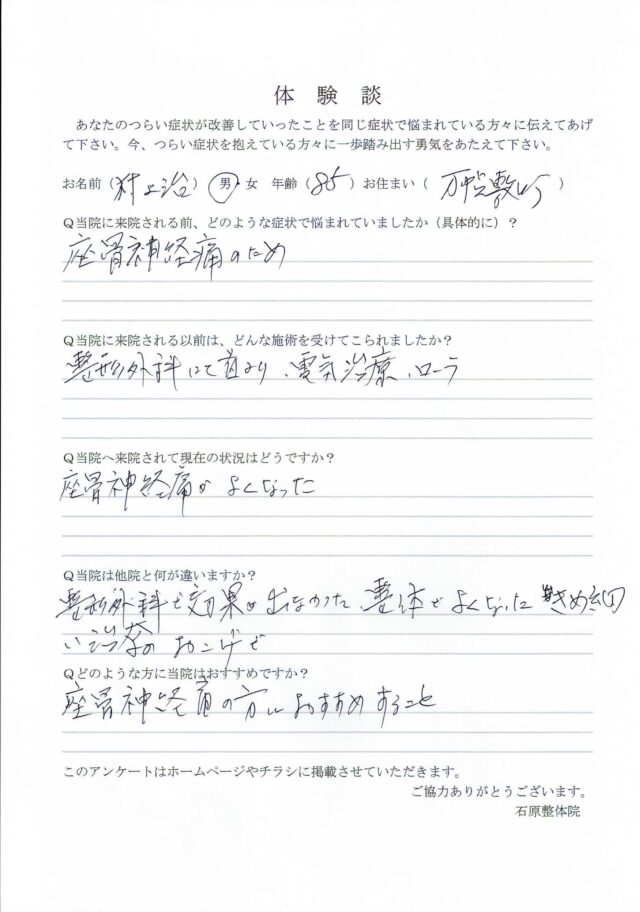 体験談
あなたのつらい症状が改善していったことを同じ症状で悩まれている方々に伝えてあげ
て下さい。今、つらい症状を抱えている方々に一歩踏み出す勇気をあたえて下さい。
お名前（村上治）男・女 年齢（85）お住まい（ ）
Q当院に来院される前、どのような症状で悩まれていましたか（具体的に）？
座骨神経痛のため
Q当院に来院される以前は、どんな施術を受けてこられましたか？
整形外科にて 電気治療、ローラ
Q当院へ来院されて現在の状況はどうですか？
座骨神経痛がよくなった
Q当院は他院と何が違いますか？
整形外科で効果が出なかった、整体でよくなった きめ細
い治療のおかげで
Qどのような方に当院はおすすめですか？
座骨神経痛の方におすすめすること
このアンケートはホームページやチラシに掲載させていただきます。
ご協力ありがとうございます。
石原整体院